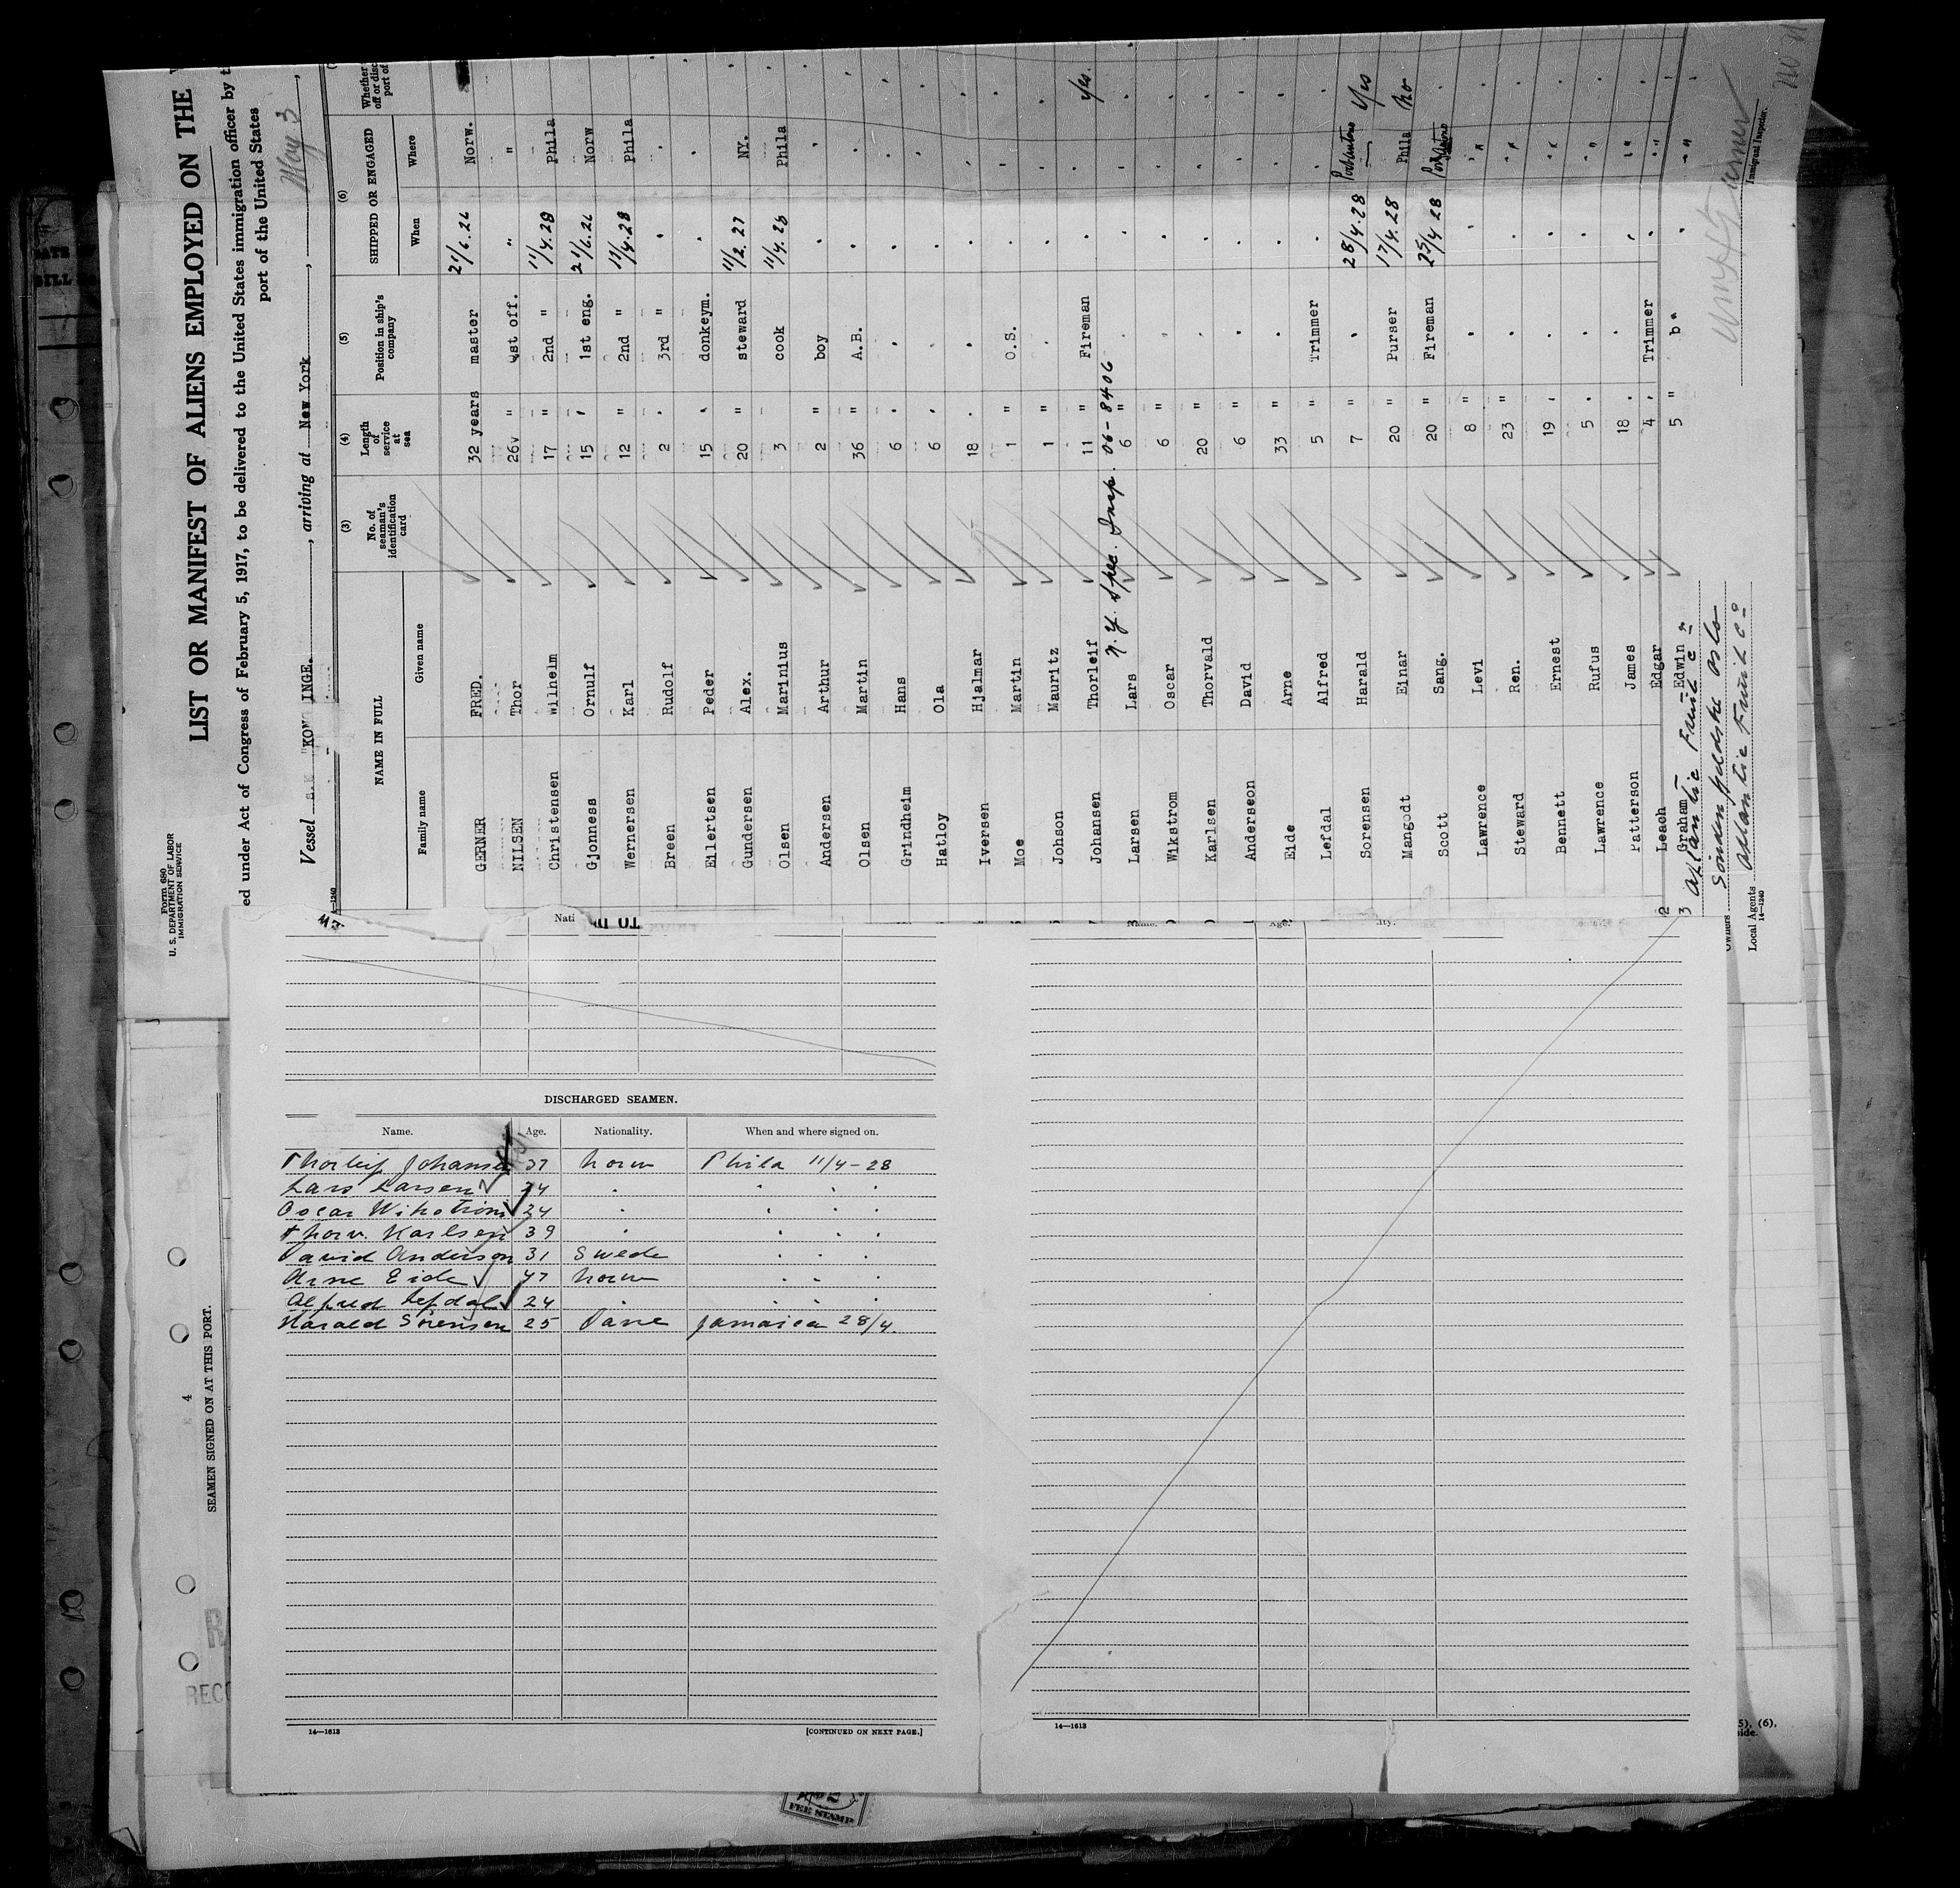 Form 680
U. S. DEPARTMENT OF LABOR
IMMIGRATION SERVICE
LIST OR MANIFEST OF ALIENS EMPLOYED ON THE
ed under Act of Congress of February 5, 1917, to be delivered to the United States immigration officer by
port of the United States
Vessel "KONG INGE. , arriving at New York , May 3 ,
(3) (4) (5) (6)
NAME IN FULL No. of seaman's identification card Length of service at sea Position in ship's company SHIPPED OR ENGAGED Whether
off or disc
port of
Family name Given name When Where
GERNER FRED. 32 years master 21/6.26 Norw.
NILSEN Thor 26 " 1st off. " "
Christensen Wilhelm 17 " 2nd " 11/4.28 Phila
Gjonness Ornulf 15 1st eng. 21/6.26 Norw
Wernersen Karl 12 " 2nd " 11/4.28 Phila
Breen Rudolf 2 3rd "
Eilertsen Peder 15 donkeym.
Gundersen Alex. 20 " steward 11/2.27 NY.
Olsen Marinius 3 cook 11/4.28 Phila
Andersen Arthur 2 " boy
Olsen Martin 36 " A.B.
Grindheim Hans 6
Hatloy Ola 6
Iversen Hjalmar 18
Moe Martin 1 " O.S.
Johson Mauritz 1 "
Johansen Thorleif 11 " Fireman Yes.
N.Y. Spec. Insp. 06-8406
Larsen Lars 6 "
Wikstrom Oscar 6 "
Karlsen Thorvald 20 "
Anderseon David 6 "
Eide Arne 33 "
Lefdal Alfred 5 " Trimmer
Sorensen Harald 7 " 28/4.28 Yes
Mangodt Einar 20 " Purser 17/4.28 Phila No
Scott Sang. 20 " Fireman 25/4 28
Lawrence Levi 8 "
Steward Ren. 23 "
Bennett Ernest 19
Lawrence Rufus 5
Patterson James 18
Leach Edgar 4 Trimmer
Graham Edwin 5 "
Atlantic Fruit Co
Owners Söndenfjeldske Oslo
Local Agents Atlantic Fruit Co
14—1240
Immigrant Inspector.
Nati
Name. Age.
DISCHARGED SEAMEN.
Name. Age. Nationality. When and where signed on.
Thorleif Johansen 37 Norw Phila 11/4-28
Lars Larsen 24
Oscar Wikstrom 24
Thorv. Karlsen 39
David Anderson 31 Swede
Arne Eide 47 Norw
Alfred Lefdal 24
Harald Sörensen 25 Dane Jamaica 28/4.
14—1613 [CONTINUED ON NEXT PAGE.]
14—1613
4
SEAMEN SIGNED ON AT THIS PORT.
FEE STAMP
5), (6),